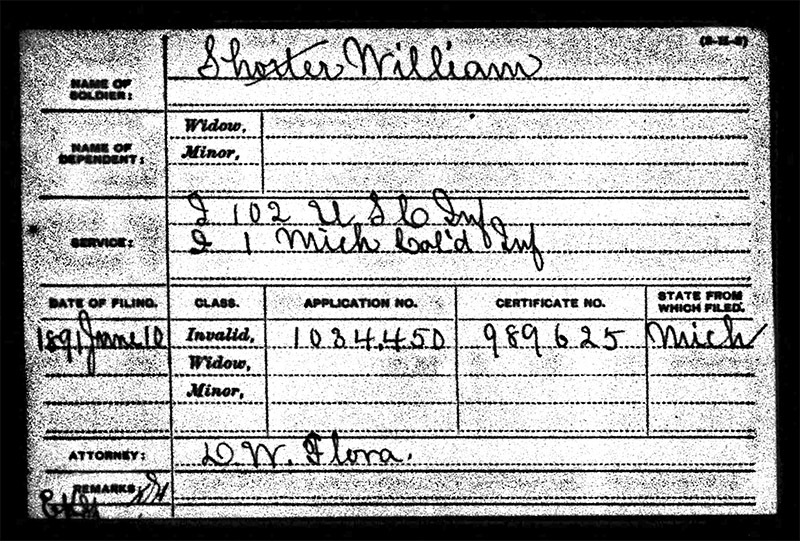 (3-M-3)
Shorter William
NAME OF SOLDIER:
Widow,
NAME OF DEPENDENT:
Minor,
I 102 U S C Inf
SERVICE:
I 1 Mich Col'd Inf
DATE OF FILING. CLASS. APPLICATION NO. CERTIFICATE NO. STATE FROM WHICH FILED.
1891 June 10 Invalid, 1034,450 989625 Mich
Widow,
Minor,
ATTORNEY: D. W. Flora.
REMARKS